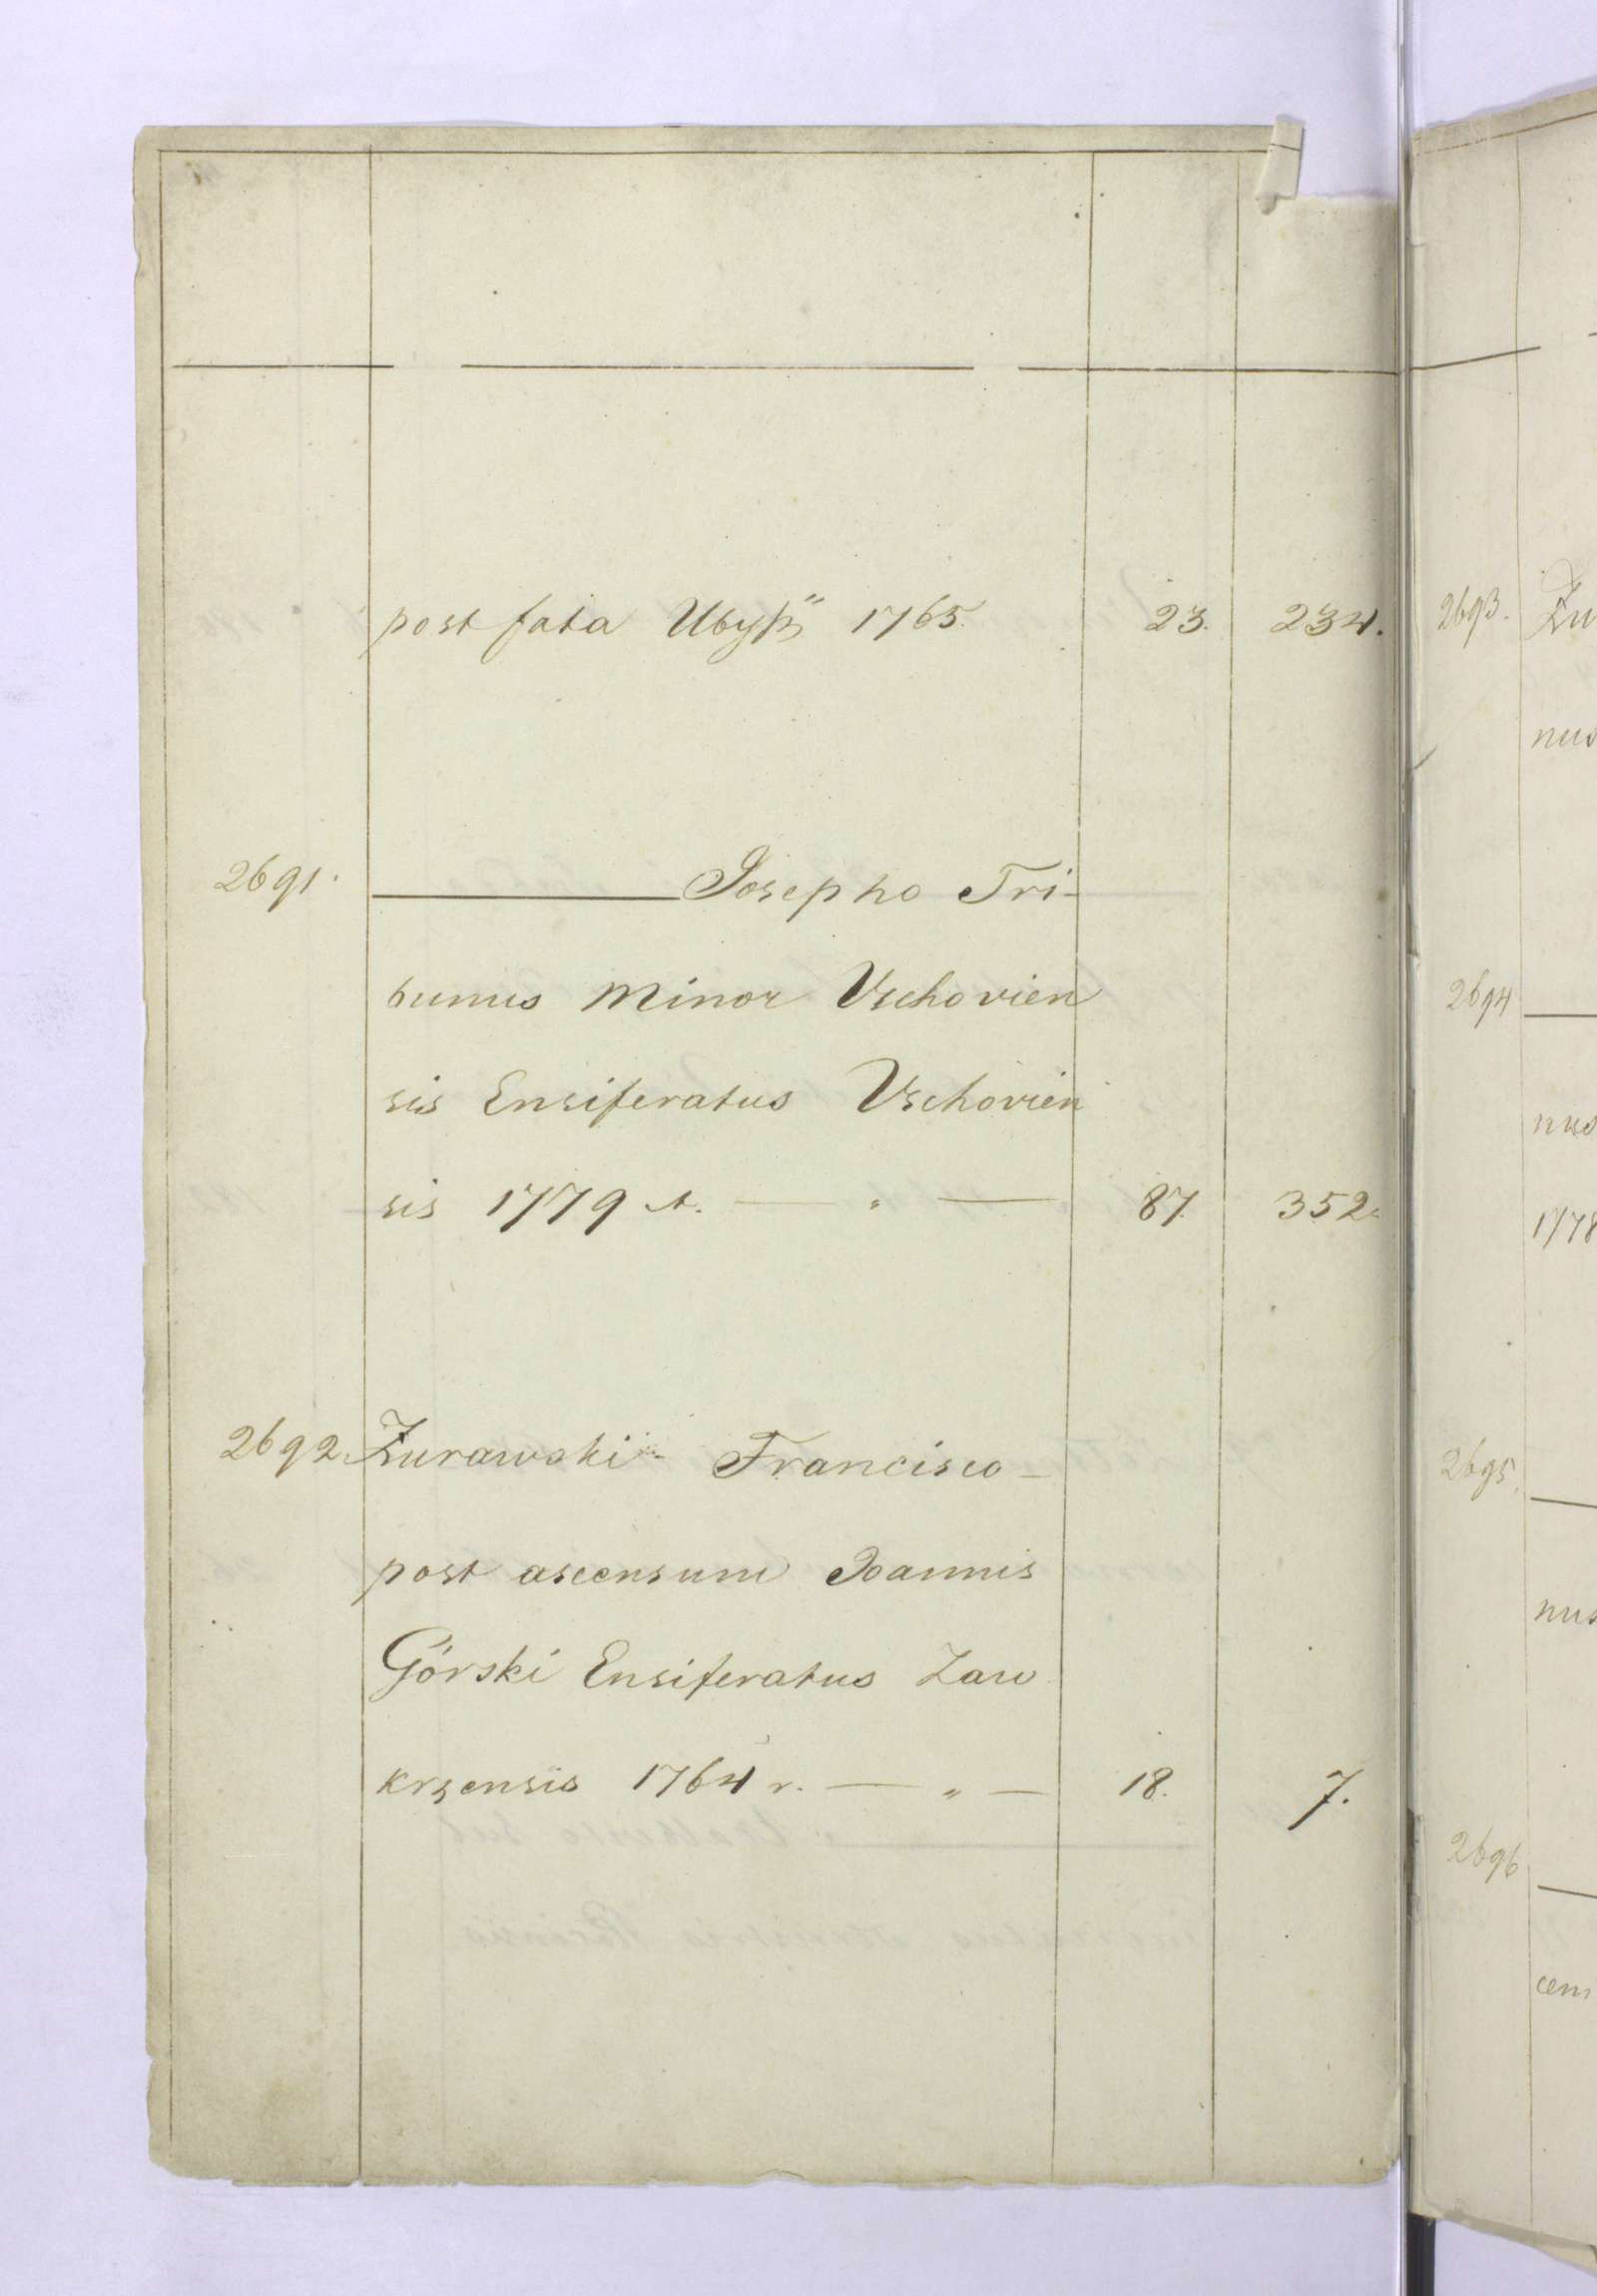 post fata Ubysz 1765. 23. 234.
2691. Josepho Tri-
bunus Minor Vschovien
sis Ensiferatus Vschovien
sis 1779 r. — „ — 87. 352.
2692. Żurawski Francisco -
post ascensum Joannis
Górski Ensiferatus Zaw
krzensis 1764 r. — „ — 18. 7.
2693. Żu
nus
2694
nus
1778
2695.
nus
2696
cens